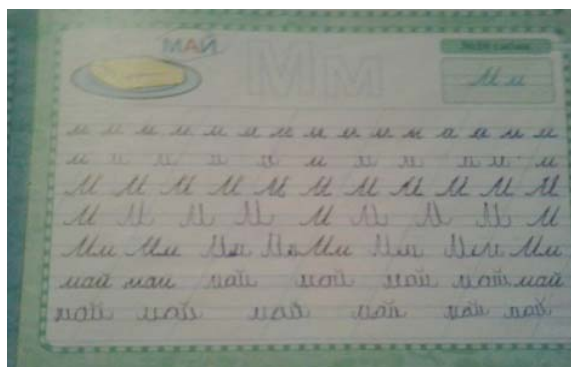 МАЙ
Мм
Мм
м м м м м м м м м м м м м м м
м м м м м м м м м м м
М М М М М М М М М М М
М М М М М М М М М
Мм Мм Мм Мм Мм Мм Мм Мм
май май май май май май май
май май май май май май